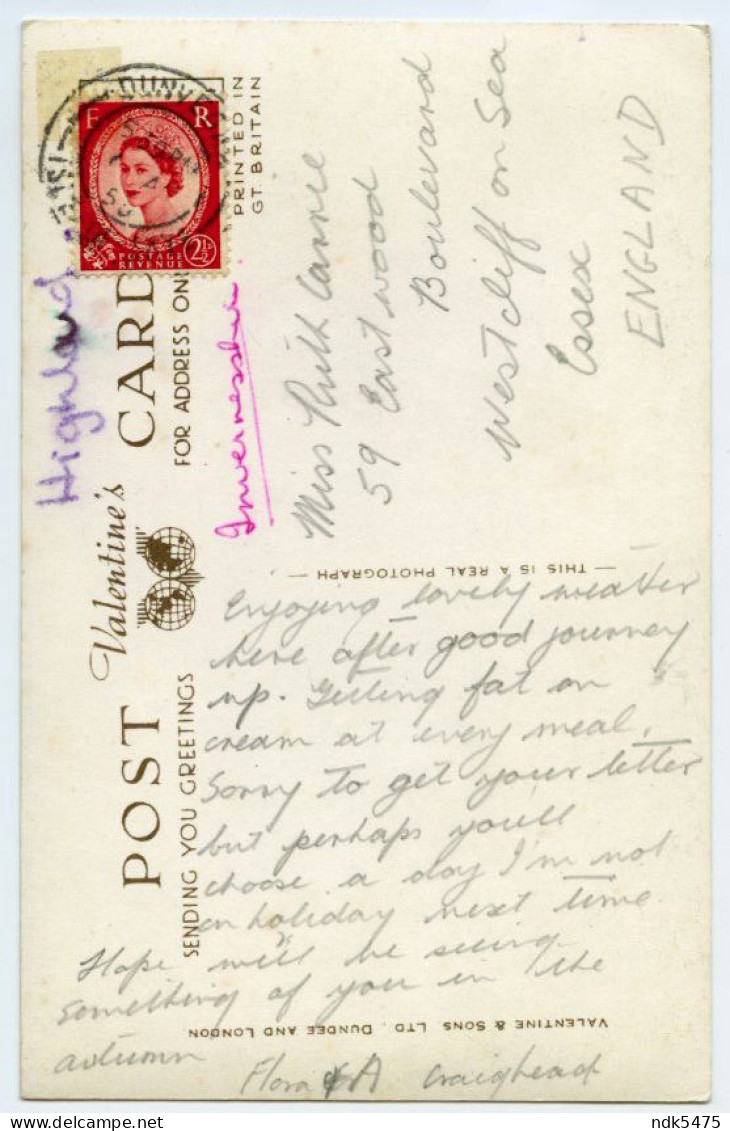 Highland
POST CARD
Valentine's
SENDING YOU GREETINGS
FOR ADDRESS ON
PRINTED IN
GT. BRITAIN
E R
POSTAGE
REVENUE
2½
DUNVEGAN
Inverness-shire
Miss Ruth
59 Eastwood
Boulevard
Westcliff on Sea
Essex
ENGLAND
— THIS IS A REAL PHOTOGRAPH —
Enjoying lovely weather
here after good journey
up. Getting fat on
cream at every meal.
Sorry to get your letter
but perhaps you'll
choose a day I'm not
on holiday next time.
Hope will be seeing
something of you in the
autumn
Flora & A Craighead
VALENTINE & SONS, LTD. DUNDEE AND LONDON.
ndk5475